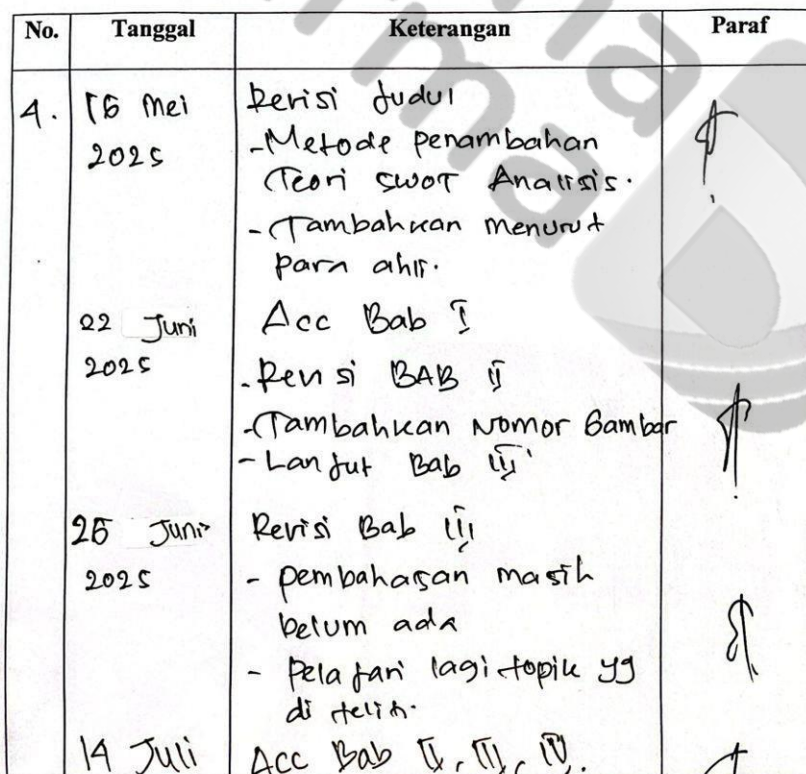 No. Tanggal Keterangan Paraf
4. 16 Mei Revisi Judul
2025 - Metode penambahan
Teori SWOT Analisis.
- Tambahkan menurut
para ahli.
22 Juni Acc Bab I
2025 - Revisi BAB II
- Tambahkan Nomor Gambar
- Lanjut Bab III
25 Juni Revisi Bab III
2025 - pembahasan masih
belum ada
- Pelajari lagi topik yg
di teliti.
14 Juli Acc Bab II, III, IV.